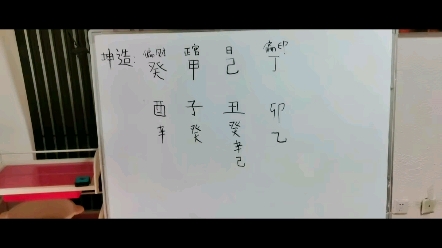 坤造: 偏财 正官 日 偏印
癸 甲 己 丁
酉 子 丑 卯
辛 癸 癸 乙
辛
己